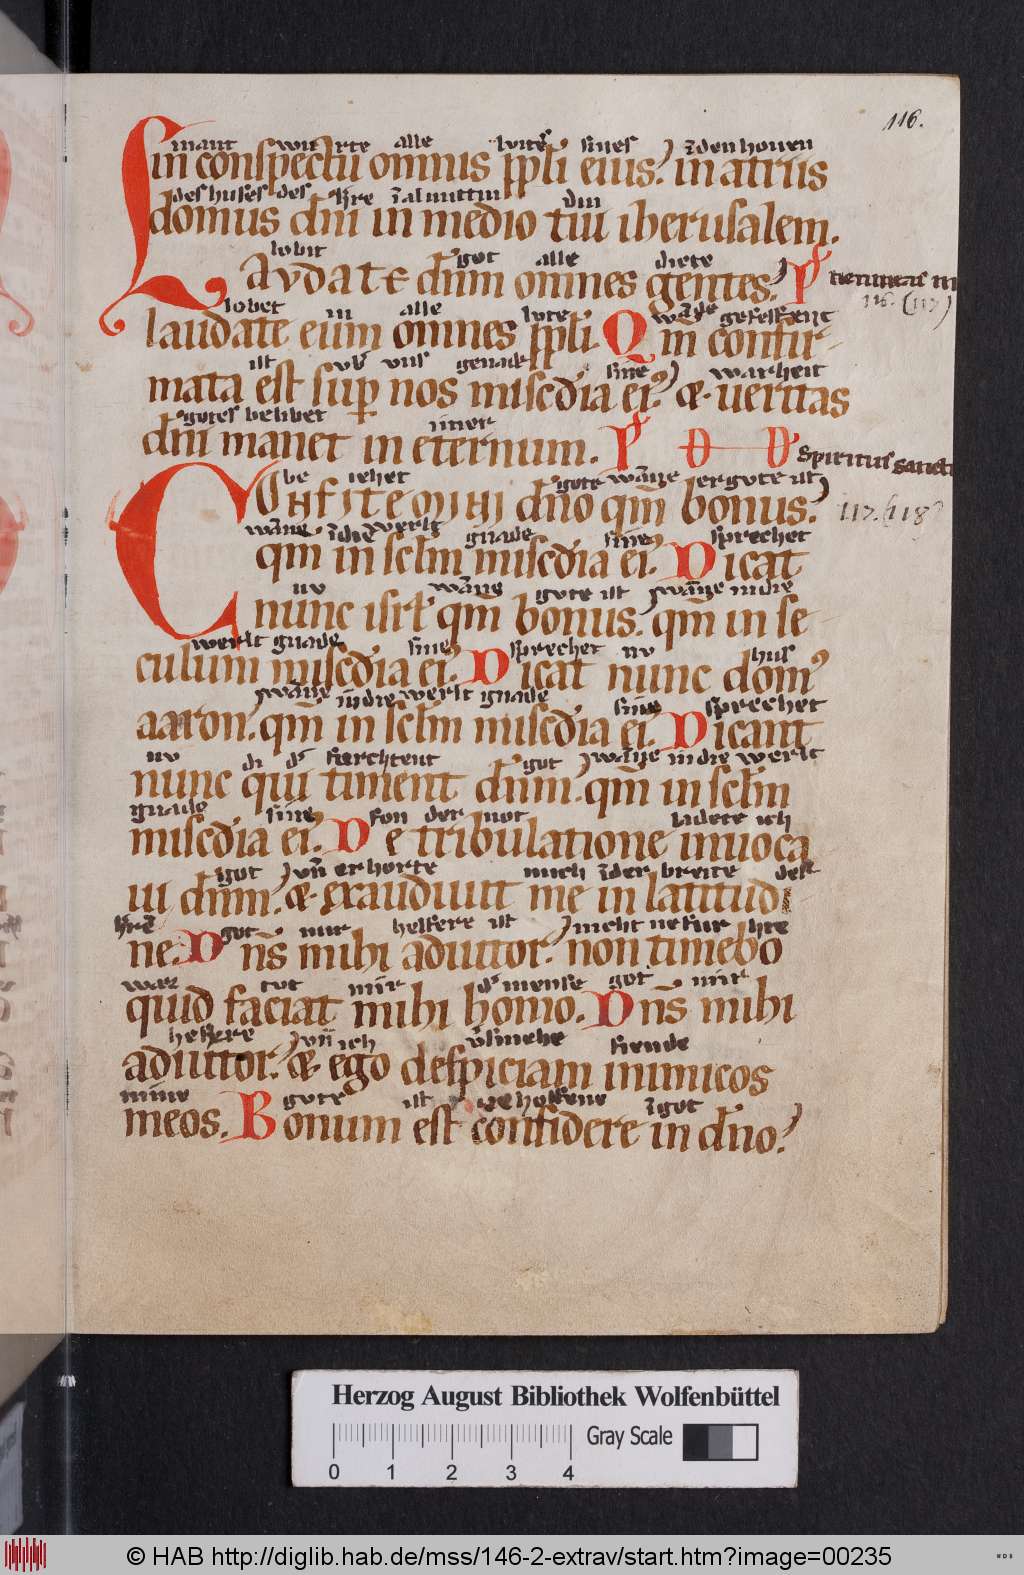 116.
alle
in conspectu omnis ppli eius. in atriis
des huses des
domus dn̄i in medio tui iherusalem.
lobit got alle diete
Laudate dn̄m omnes gentes. P
116. (117)
lobet in alle lute
laudate eum omnes ppli. Qm̄ confir-
ist vb̓ vns genade sine warheit
mata est sup nos misc̄dia ei. & veritas
gotes belibet imer
dn̄i manet in eternum. P
Spiritus sancti
be iehet gote wāne er gute ist
Confitemini dn̄o qm̄ bonus.
117. (118)
wāne īdie werlt gnade sine sprechet
qm̄ in sclm̄ misc̄dia ei. Dicat
nv wāne gote ist wāne in die
nunc isrl qm̄ bonus. qm̄ in se
werlt gnade sine sprechet nv hus
culum misc̄dia ei. Dicat nunc dom᷒
wāne in die werlt gnade sine sprechet
aaron. qm̄ in sclm̄ misc̄dia ei. Dicant
nv di furchtent got wāne in die werlt
nunc qui timent dn̄m. qm̄ in sclm̄
gnade sine fon der not ladete ich
misc̄dia ei. De tribulatione inuoca
got vn̄ erhorte mich īder breite des
ui dn̄m. & exaudiuit me in latitudi
got mir helfere ist nicht ne fur hte
ne. Dn̄s mihi adiutor. non timebo
waz tut mir d̓ mense got mir
quid faciat mihi homo. Dn̄s mihi
helfere vn̄ ich viende
adiutor. & ego despiciam inimicos
mine gote ist ze hoffene īgot
meos. Bonum est confidere in dn̄o.
Herzog August Bibliothek Wolfenbüttel
Gray Scale
0 1 2 3 4
© HAB http://diglib.hab.de/mss/146-2-extrav/start.htm?image=00235